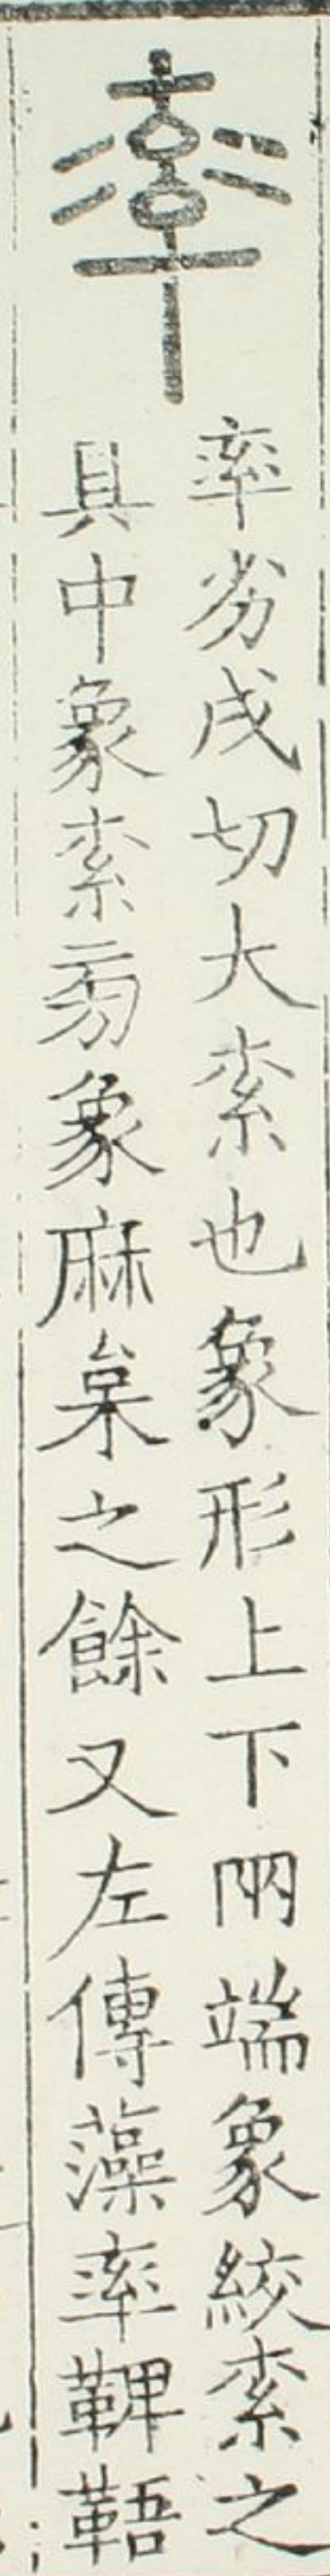 率
率劣戌切大索也象形上下兩端象絞索之
具中象索旁象麻枲之餘又左傳藻率鞞鞛